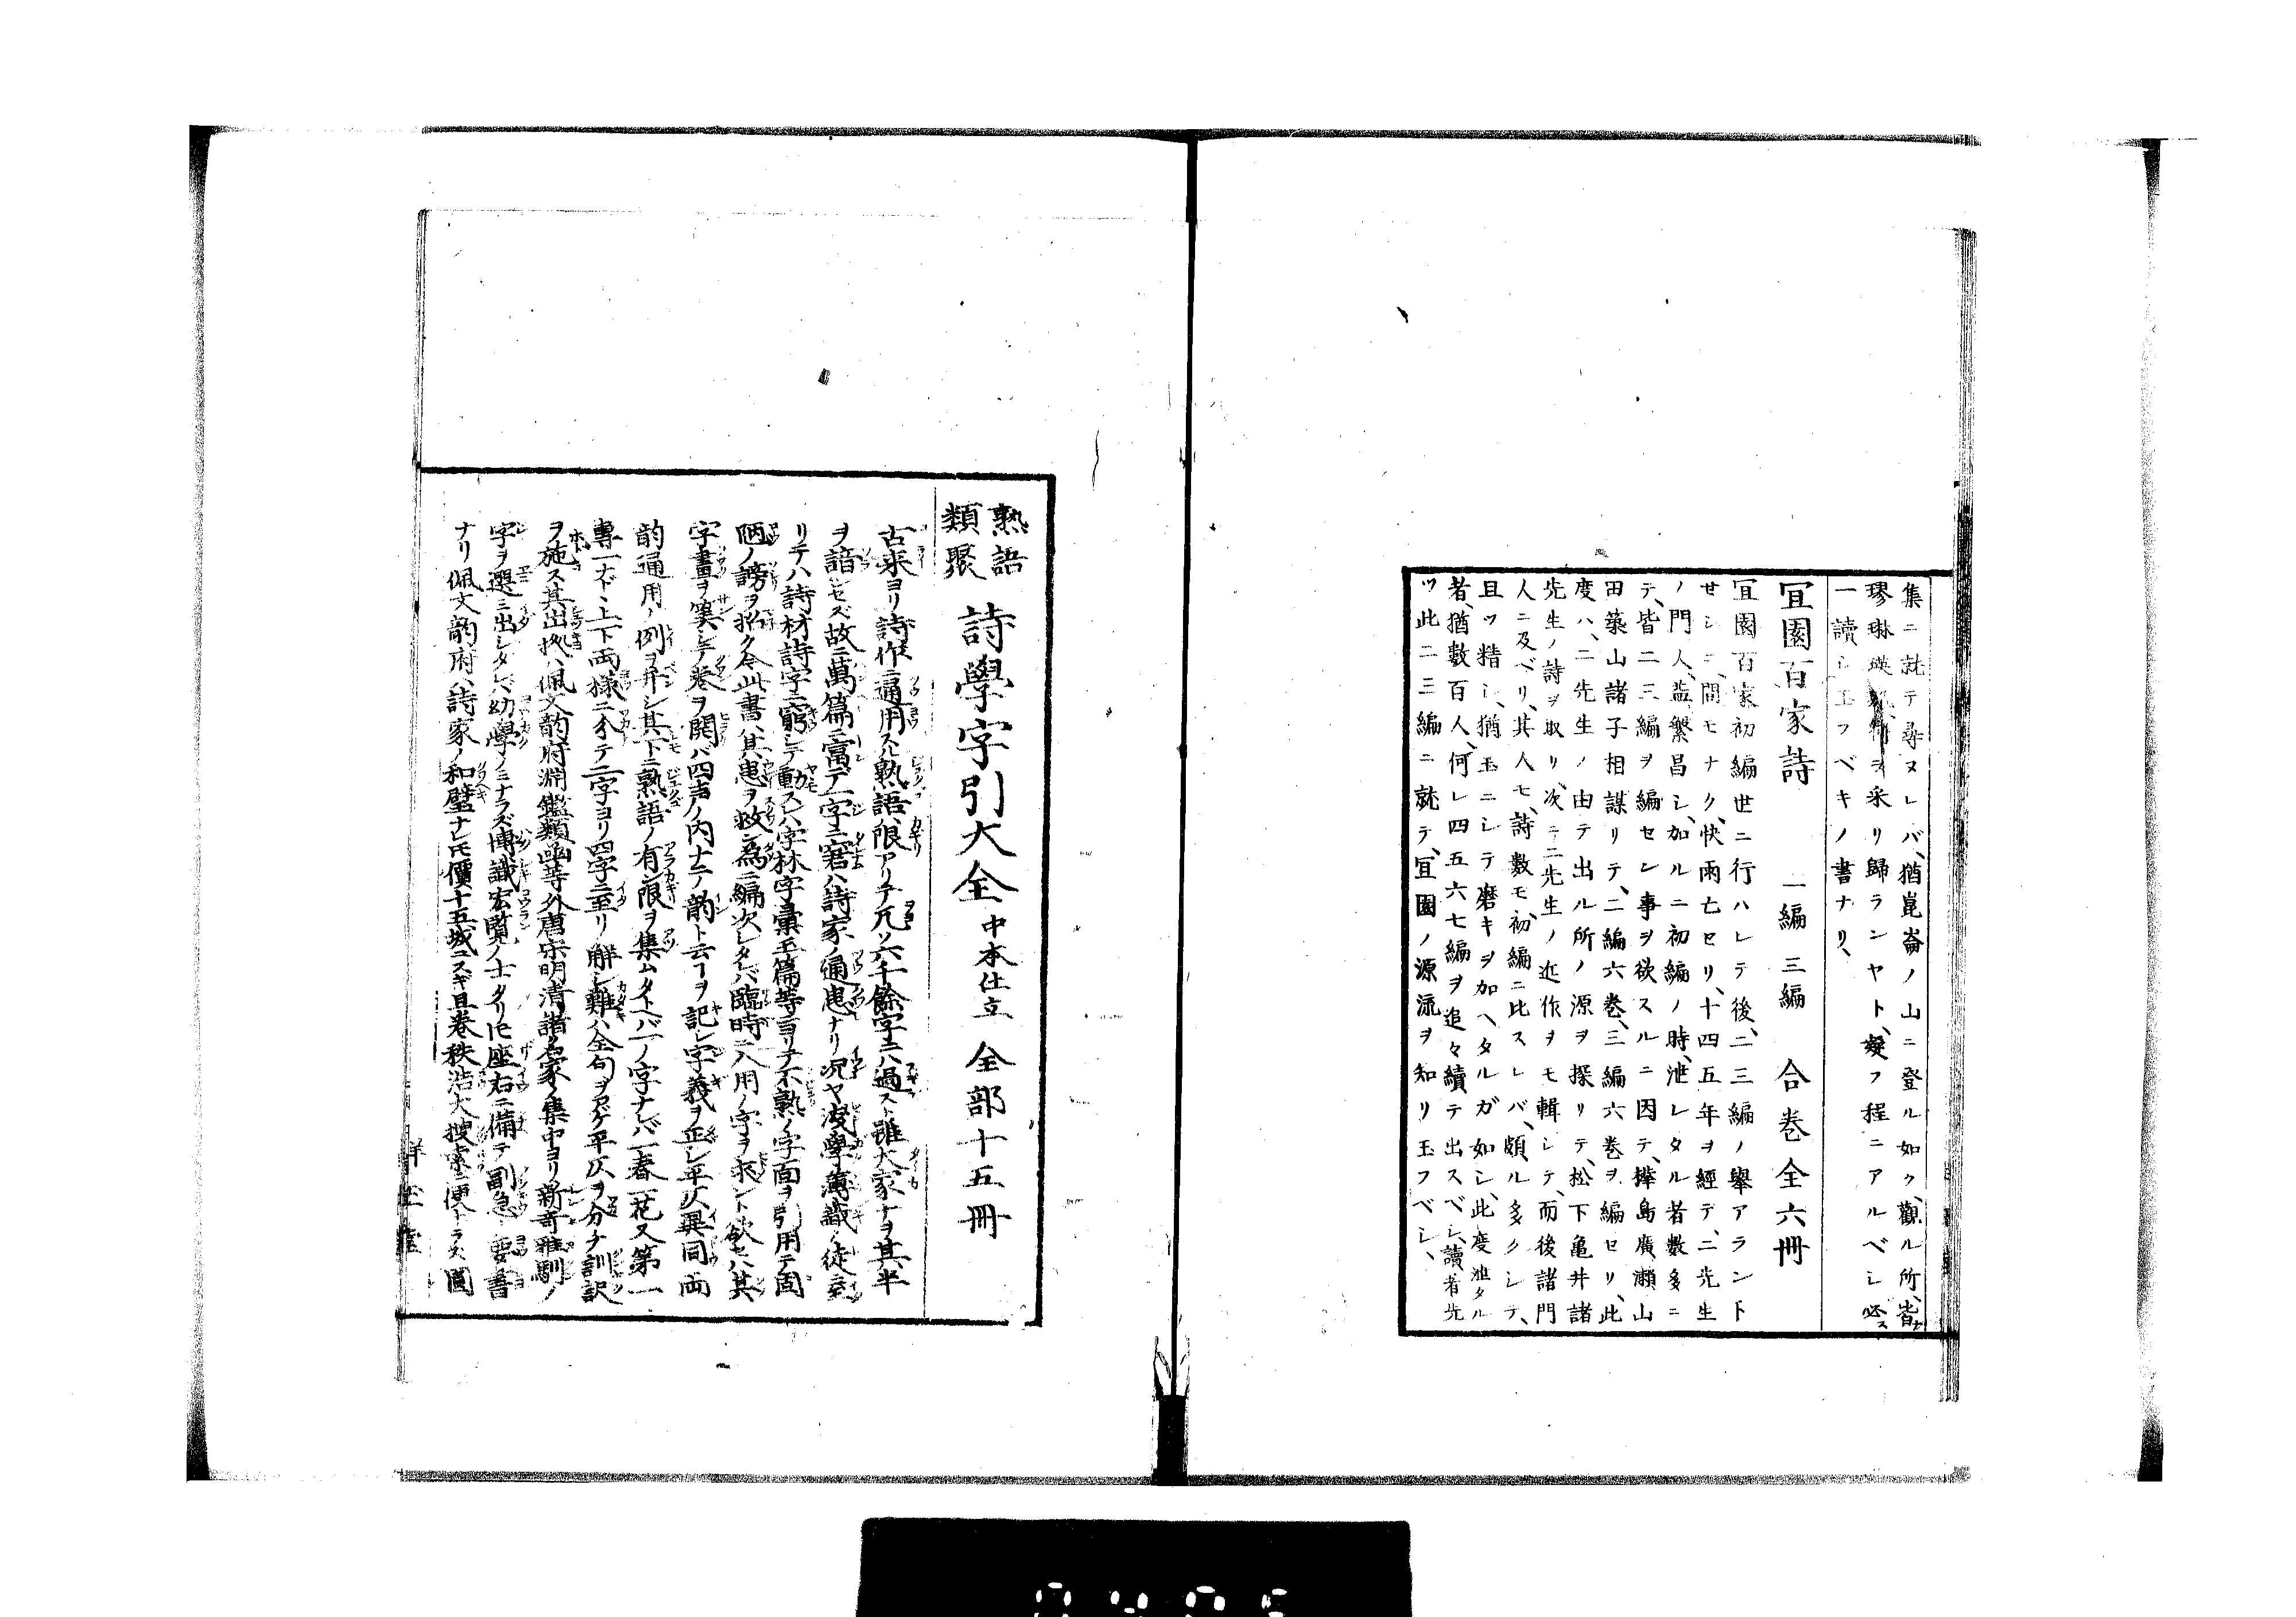 集ニ就テ尋ヌレバ、猶崑崙ノ山ニ登ル如ク、觀ル所、皆ナ
璆琳瑛ヲ采リ歸ランヤト、疑フ程ニアルベシ必ス
一讀シ玉フベキノ書ナリ、
宜園百家詩　二編　三編　合卷全六冊
宜園百家初編世ニ行ハレテ後、二三編ノ擧アラント
セシニ、間モナク、快雨亡セリ、十四五年ヲ經テ、二先生
ノ門人、益繁昌シ、加ルニ初編ノ時、泄レタル者數多ニ
テ、皆二三編ヲ編セン事ヲ欲スルニ因テ、樺島廣瀬山
田築山諸子相謀リテ、二編六巻、三編六巻ヲ編セリ、此
度ハ、二先生ノ由テ出ル所ノ源ヲ探リテ、松下亀井諸
先生ノ詩ヲ取リ、次ニ二先生ノ近作ヲモ輯シテ、而後諸門
人ニ及ベリ、其人モ、詩數モ、初編ニ比スレバ、頗ル多クシテ、
且ツ精シ、猶玉ニシテ磨キヲ加ヘタルガ如シ、此度泄タル
者、猶數百人、何レ四五六七編ヲ追々續テ出スベシ、讀者先
ツ此二三編ニ就テ、宜園ノ源流ヲ知リ玉フベシ、
熟語類聚　詩學字引大全　中本仕立　全部十五冊
古来ヨリ詩作ニ通用スル熟語、限アリテ凡ソ六千餘字ニハ過スト雖大家ナヲ其半
ヲ諳セズ故ニ萬篇ニ富テ一字ニ窘ハ詩家ノ通患ナリ况ヤ淺學薄識ノ徒ニ至
リテハ詩材詩字ニ窮シテ動スレハ字林字彙玉篇等ヨリテ不熟ノ字面ヲ引用テ固
陋ノ謗ヲ招ク今此書、其患ヲ救ン為ニ編次シタレバ臨時ニ入用ノ字ヲ求ント欲セハ其
字畫ヲ算シテ卷ヲ開バ四声ノ内ナニテ韵ト云フヲ記シ字義ヲ正シ平仄異同両
韵通用ノ例ヲ弁シ其下ニ熟語ノ有ン限ヲ集ムタトヘバ一ノ字ナレバ一春一花又第一
專一ナド上下両様ニ分テ二字ヨリ四字ニ至リ解シ難ハ全句ヲアゲ平仄ヲ分チ訓訳
ヲ施ス其出拠ハ佩文韵府淵鑑類函等外唐宋明清諸名家ノ集中ヨリ新奇雅馴ノ
字ヲ選ミ出シタレハ幼學ノミナラズ博識宏覧ノ士タリ𪜈座右ニ備テ副急ノ要書
ナリ佩文韵府ハ詩家ノ和璧ナレ𪜈價十五城ニスギ且卷秩浩大捜索ニ便ナラズ